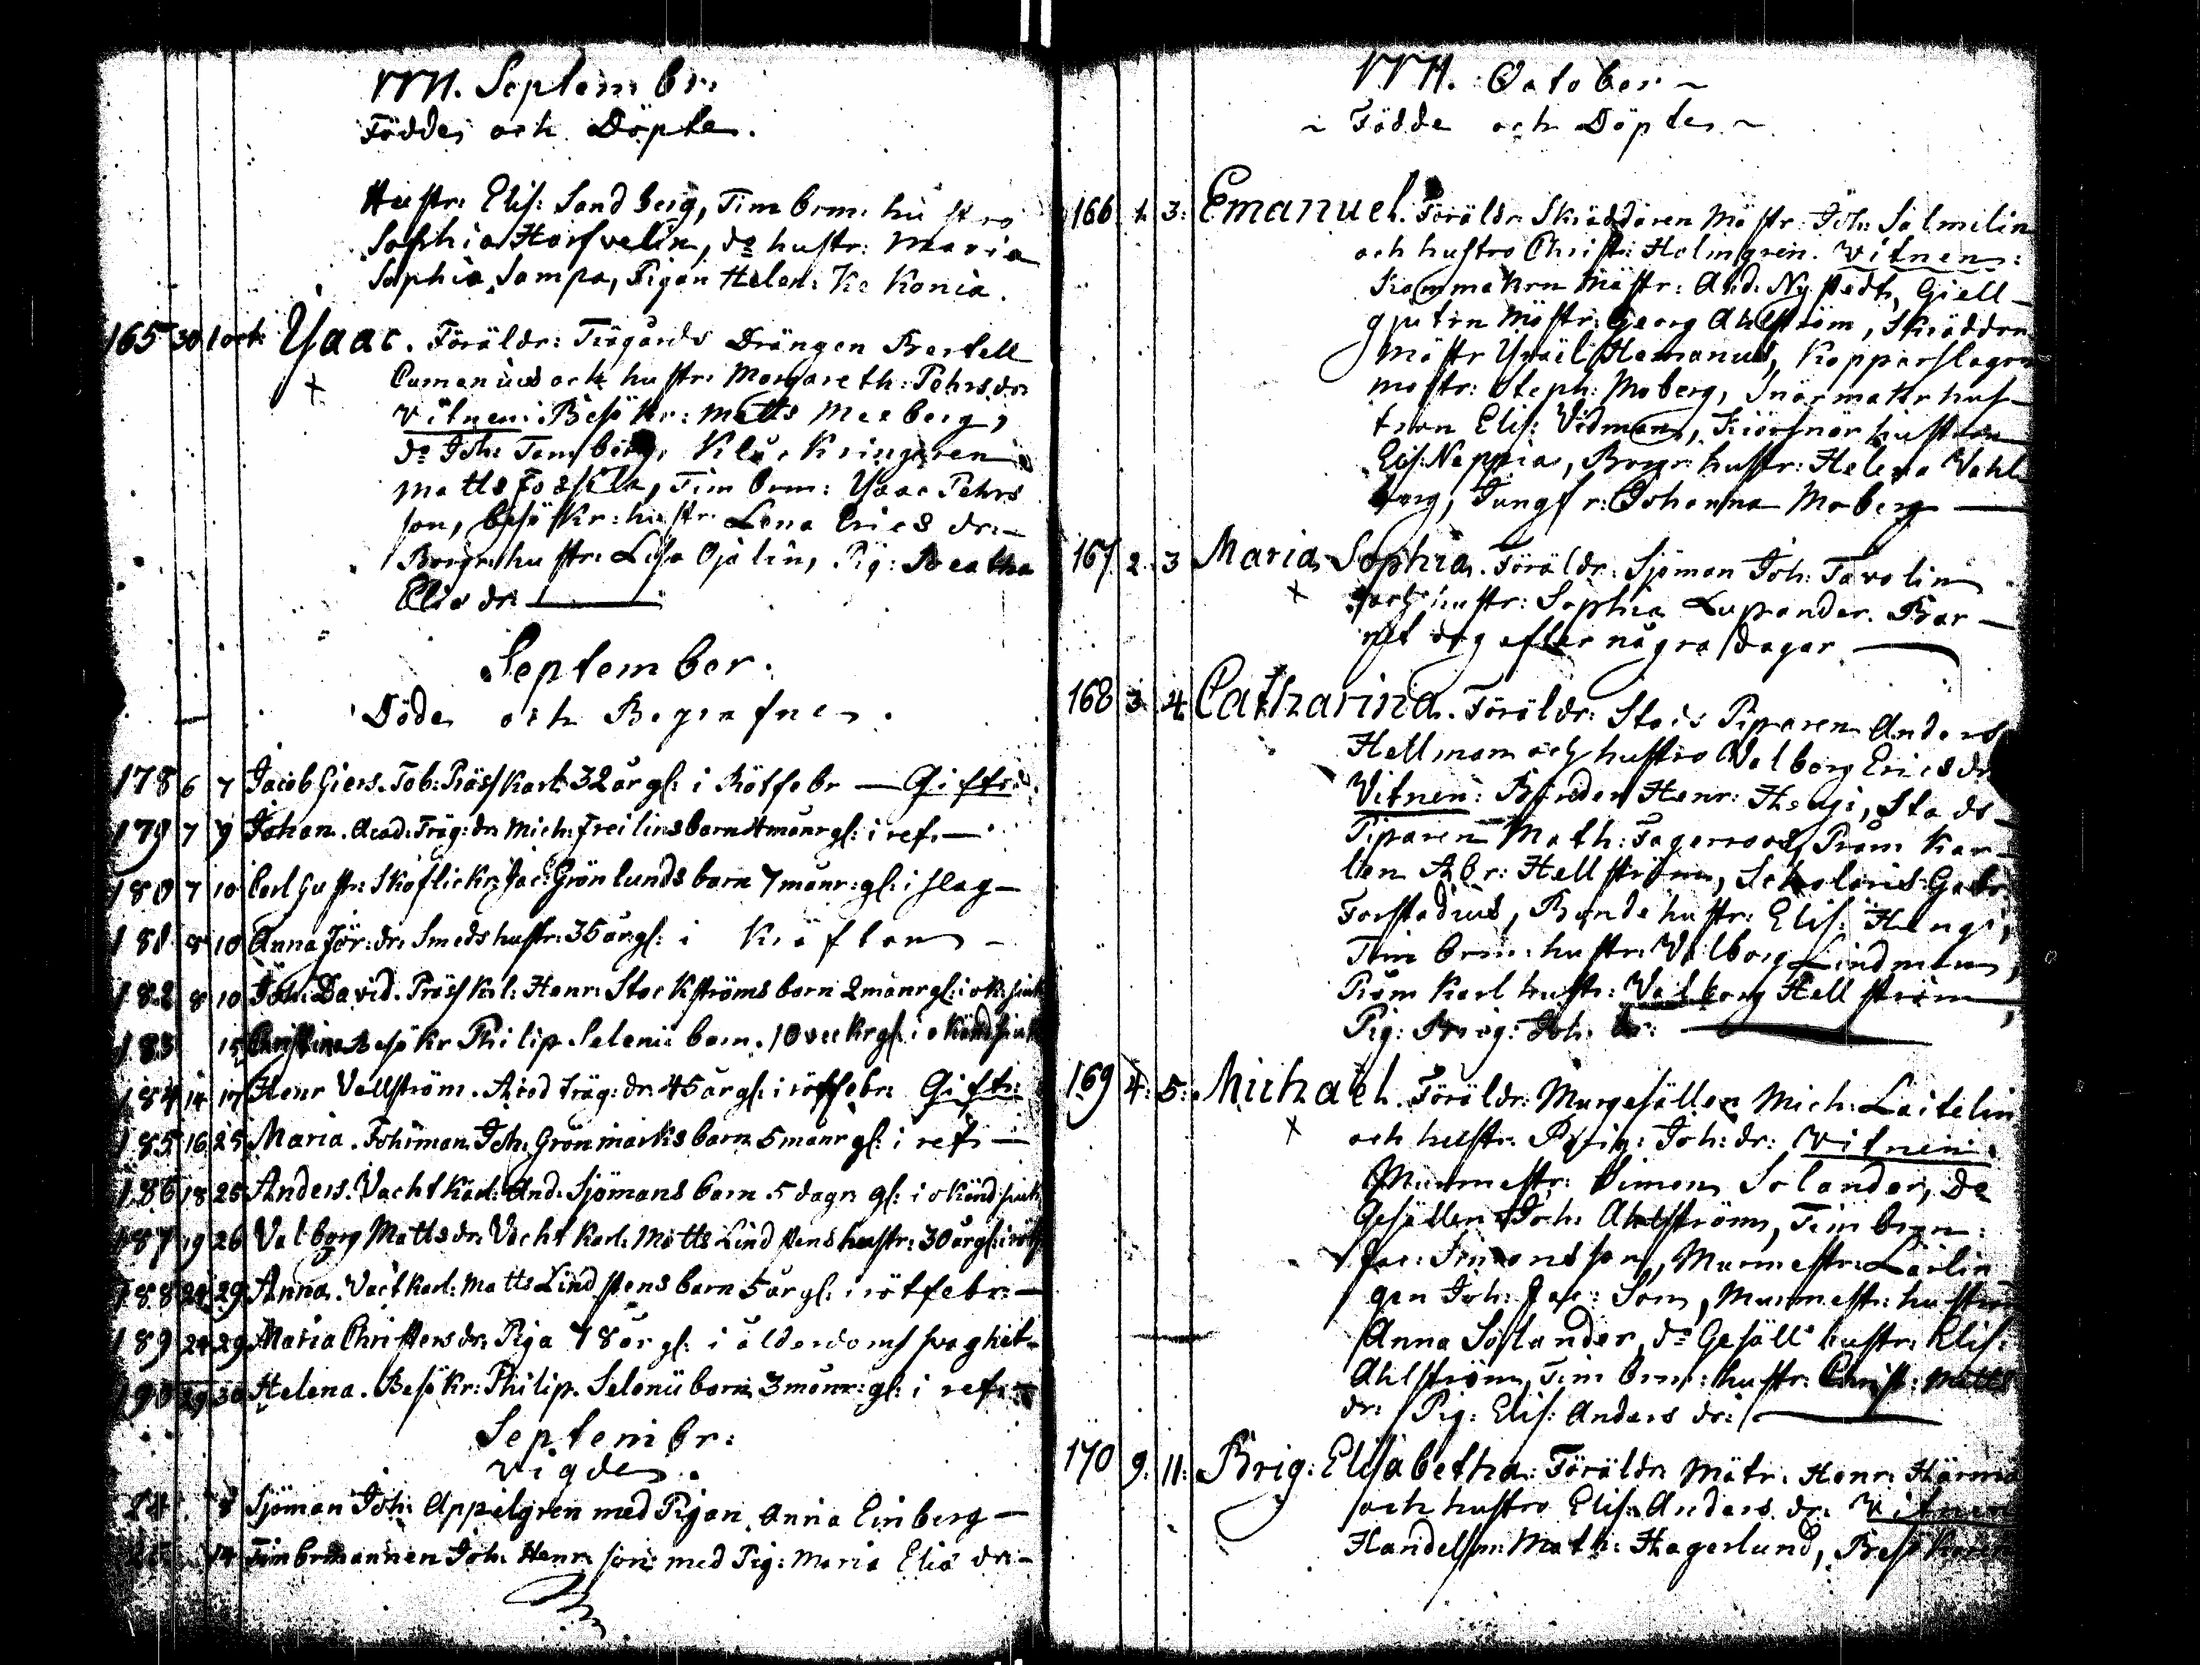 1771. Septembr:
Födde och Döpte.
Hustr: Elis: Sandberg, Timberm: hustro
Sophia Harfvelin, do hustr: Maria
Sophia Sampa, Pigan Helen: Kekonia.
165 30 1 oct: Isaac. Föräldr: Trägårds Drängen Bertell
Cumenius och hustr: Margareth: Pehrsdr:
Vitnen: Besökr: Matts Meeberg,
do Joh: Tamberg, Klockringaren
Matts Forsell, Timberm: Isaac Pehrs
son, besökr: hustr: Lena Ericsdr: —
Borgr: hustr: Lisa Ojalin, Pig: Beatha
Eliædr: —
September.
Döde och Begrafne.
178 6 7 Jacob Giers. Tob: Präss Karl 32 år gl: i Rötfebr — Gifter.
179 7 9 Johan. Acad: Träg: dr: Mich: Freilins barn 4 månr gl: i ref: —
180 7 10 Carl Gustr: Skoflickr: Jac: Grönlunds barn 7 månr: gl: i slag —
181 8 10 Anna Jör: dr: Smeds hustr: 35 år gl: i Kräftan —
182 8 10 Joh: David. Präss Krl: Henr: Stockströms barn 2 månr gl: i ok: siuk
183 15 Christina Besökr Philip Selenii barn. 10 veckr gl: i okänd siuk
184 14 17 Henr Vallström. Acad Träg: dr: 45 år gl: i rötfebr: Gift:
185 16 25 Maria. Fohrman Joh: Grönmarks barn 5 månr gl: i ref: —
186 18 25 Anders. Vacht Karl: And: Sjömans barn 5 dagr gl: i okänd siuk
187 19 26 Valborg Mattsdr: Vacht Karl: Matts Lindstens hustr: 30 år gl: i rötf
188 24 29 Anna. Vact Karl: Matts Lindstens barn 5 år gl: i rötfebr: —
189 24 29 Maria Christersdr: Piga 78 år gl: i ålderdoms svaghet —
190 29 30 Helena. Besökr: Philip. Selenii barn 3 månr: gl: i ref: —
Septembr:
Vigde.
24 8 Sjöman Joh: Appelgren med Pigan Anna Einberg —
25 14 Timbermannen Joh: Henr: son med Pig: Maria Eliædr: —
1771. October ~
~ Födde och Döpte ~
166 1. 3: Emanuel. Föräldr: Skräddaren Mästr: Joh: Salmelin
och hustro Christ: Holmgren. Vitnen:
Kammakrn Mästr: And: Nystedt, Giell —
gjutrn Mästr: Georg Ahlström, Skräddrn
Mästr Israil Hemanus, Kopparslagrn
mästr: Steph: Moberg, Snörmakr hus —
tron Elis: Vidman, Kiörsnär hustron
Elis: Neppia, Borgr: hustr: Helena Vahl
berg, Jungfr: Johanna Moberg —
167 2. 3 Maria Sophia. Föräldr: Sjöman Joh: Tavolin
och hustr: Sophia Lupander. Bar —
net dog efter några dagar —
168 3 4 Catharina. Föräldr: Stads Piparen Anders
Hellman och hustro Valborg Ericsdr
Vitnen: Bonden Henr: Hengi, Stads —
Piparen Math: Fagerroos, Präm Kar —
len Abr: Hellström, Scholaris Gabr:
Forstadius, Bonde hustr: Elis: Hengi,
Timberm: hustr: Valborg Lindman,
Präm Karl hustr: Valborg Hellström,
Pig: Brig: Joh: dr: —
169 4: 5: Michael. Föräldr: Murgesällen Mich: Laitelin
och hustr: Brig: Joh: dr: Vitnen:
Murmestr: Simon Solander, do
Gesällen Joh: Ahlström, Timberm:
Jac: Simonsson, Murmestr: Lärlin
gen Joh: Jac: Son, Murmestr: hustron
Anna Solander, do Gesäll hustr: Elis:
Ahlström, Timberm: hustr: Christ: Matts
dr: Pig: Elis: Andersdr: —
170 9: 11: Brig: Elisabetha: Föräldr: Mätr: Henr: Härmä
och hustro Elis: Andersdr: Vitnen
Handelsm: Math: Hagerlund, Besökaren